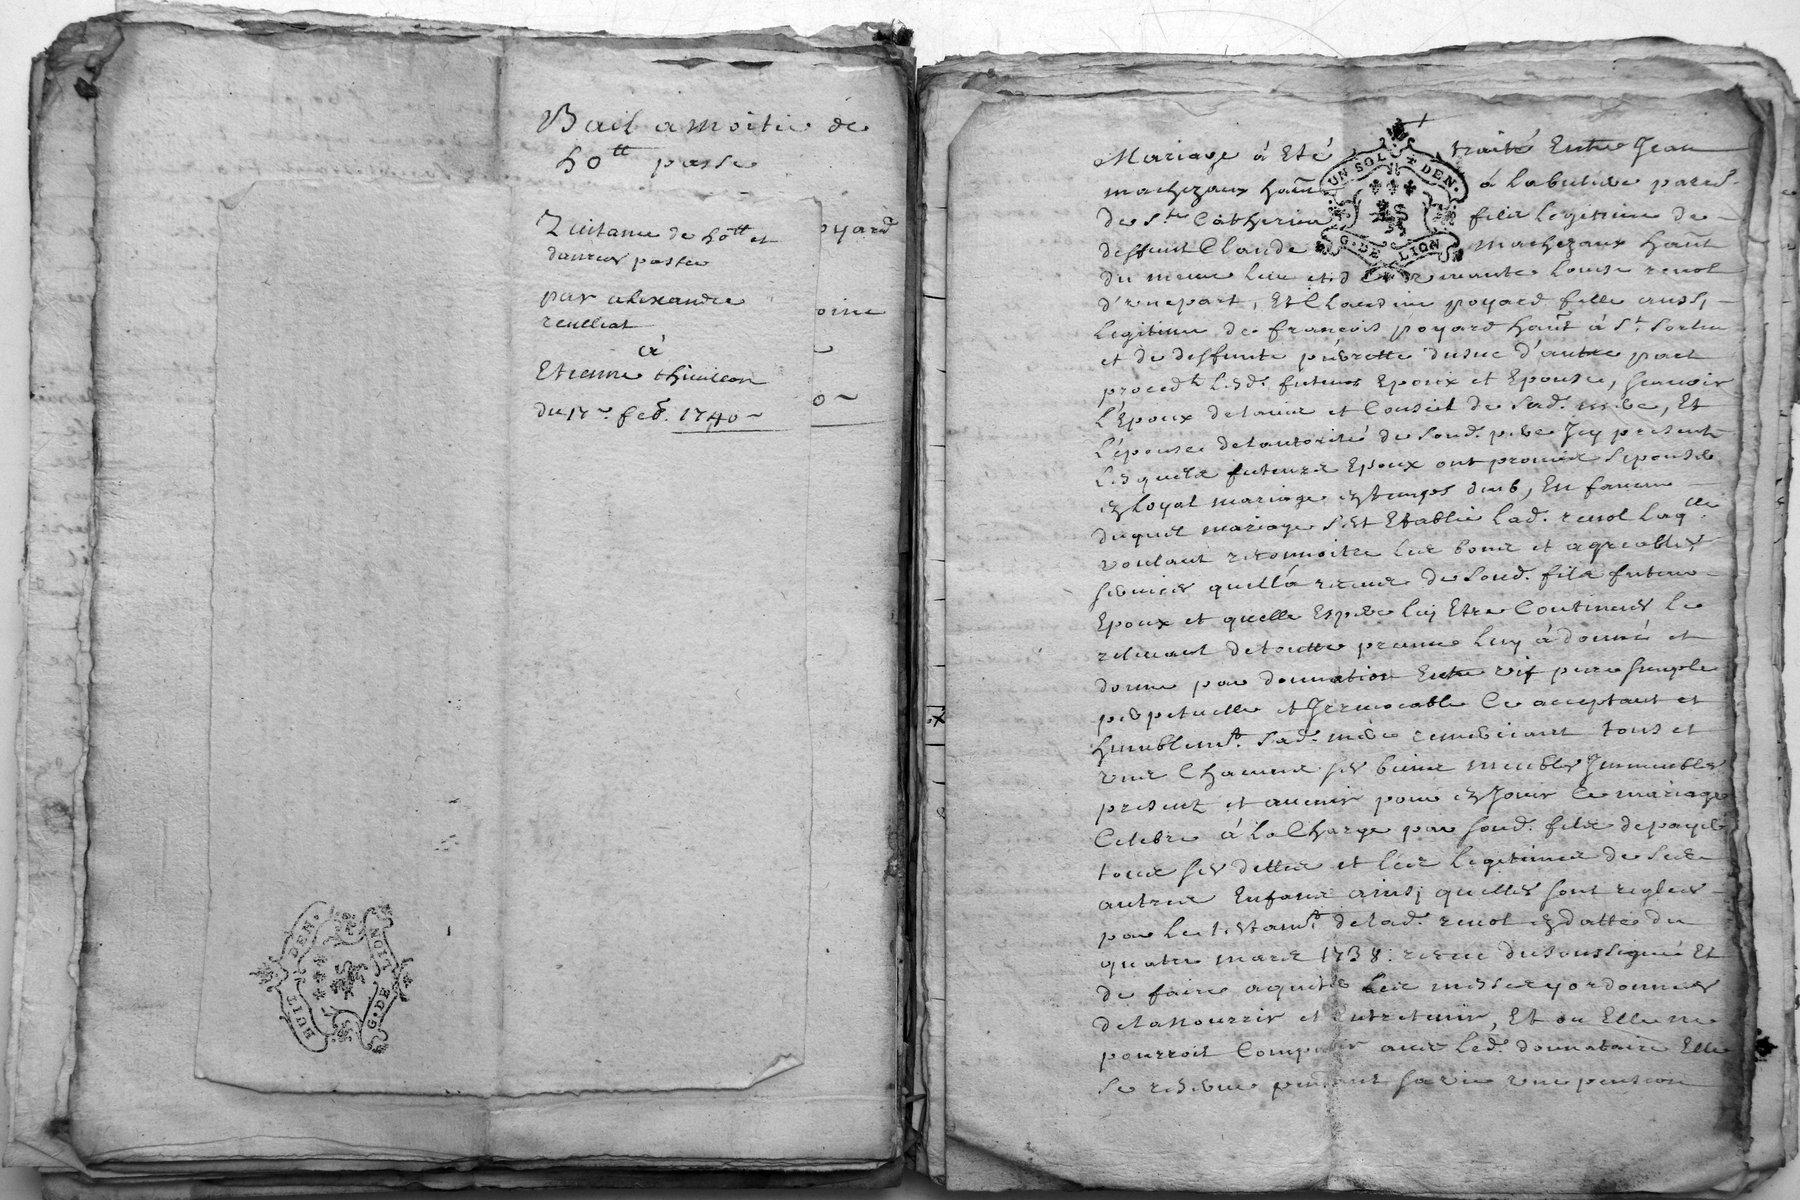 Bail a moitié de
50tt passé
Quitance de 50tt et
danrées passée
par alexandre
reulliat
à
Etienne thiuilleon
du 17e. feb. 1740
oyard
oine
HUIT DEN.
G. DE LION
Mariage à Eté traité Entre Jean
machizaux haĩit à Labutide parr.
de ste Catherine fils legitime de
deffunt Claude machezaux haũt
du meme lieu et de vivante Louise renol
d'une part, Et Claudine poyard fille aussy
legitime de françois poyard haũt à st. Sorlin
et de deffunte pierrette dusuc d'autre part
procedt. lesd. futurs Epoux et Epouse, scauoir
L'Epoux de lauis et Conseil de sad. mere, Et
L'épouse de lautorité de Sond. pere Icy present
Lesquels futeurs Epoux ont promis sepouser
en loyal mariage en temps dub, En faueur
duquel mariage s'est Establie lad. renol laqlle.
voulant reconnoitre les bons et agreables
seruices quella receus de sond. fils futeur
Epoux et quelle Espere luy Etre Continués le
releuant de toutte preuue luy à donné et
donne par donnation Entre vif pure simple
perpetuelle et Irreuocable Ce acceptant et
humblemt. sad. mere remerciant tous et
vns Chacuns ses biens meubles Immeubles
presents et auenir pour en Jouir Ce mariage
Celebré à la Charge par sond. fils de payer
tous ses dettes et les legitimes de ses
autres Enfans ainsy quelles sont reglées
par le testamt. de lad. renol en datte du
quatre mars 1738: receu du soussigné Et
de faire aquiter les messes y ordonnées
de la nourrir et entretenir, Et ou Elle ne
pourroit Compatir auec led. donnataire Elle
se reserue pendant sa vie vne pension
UN SOL DEN.
G. DE LION